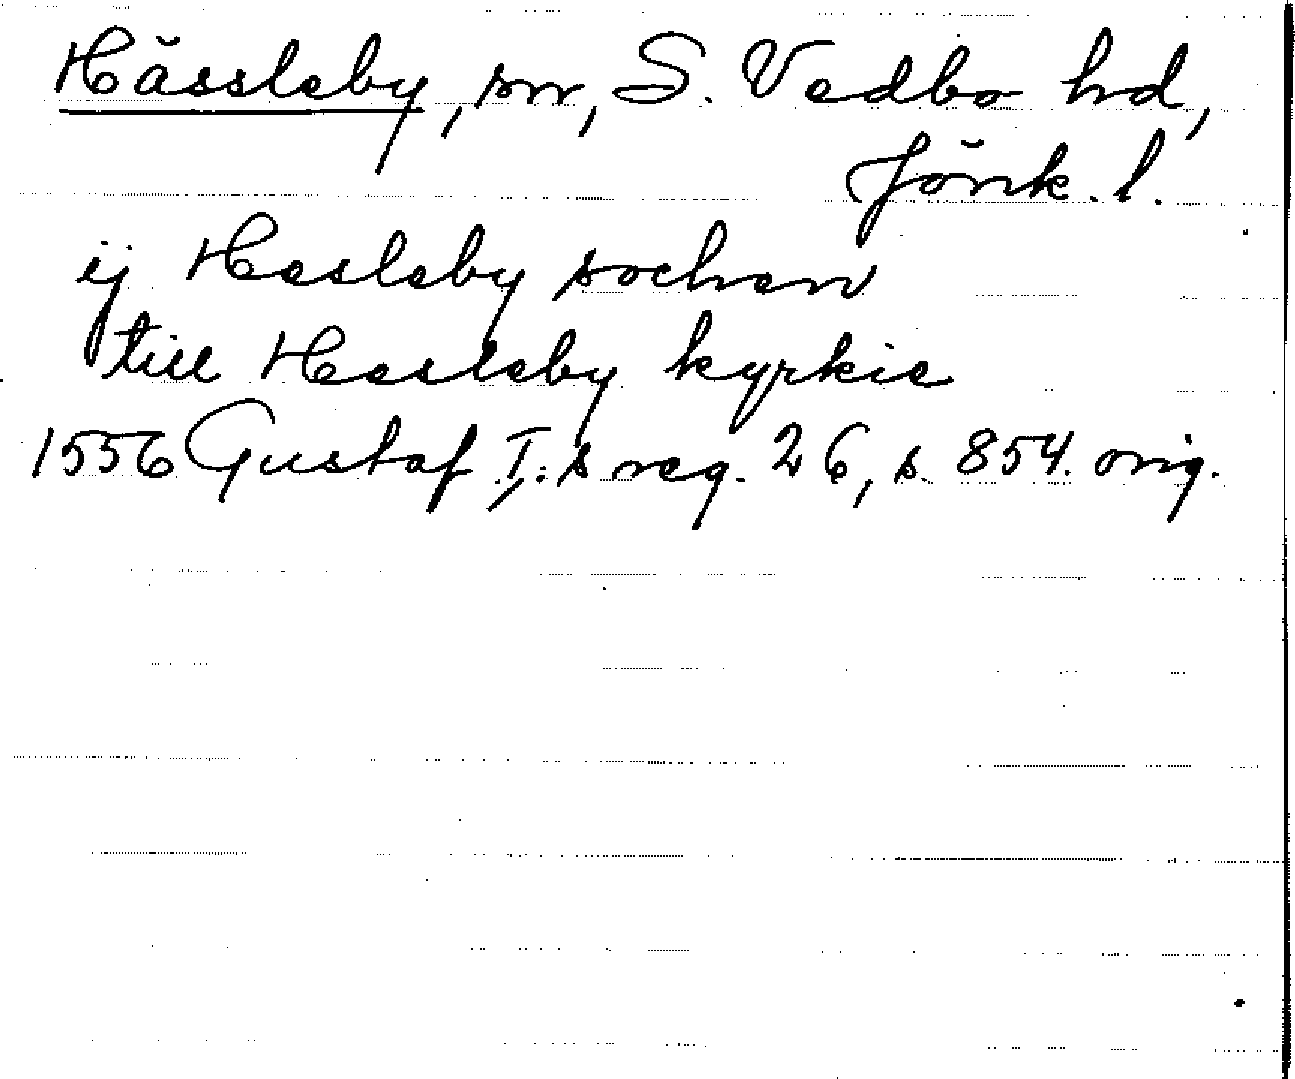 Hässleby, sn, S. Vedbo hd,
Jönk. l.
ij Hesleby sochen
till Hesleby kyrkie
1556 Gustaf I:s reg. 26, s. 854. orig.